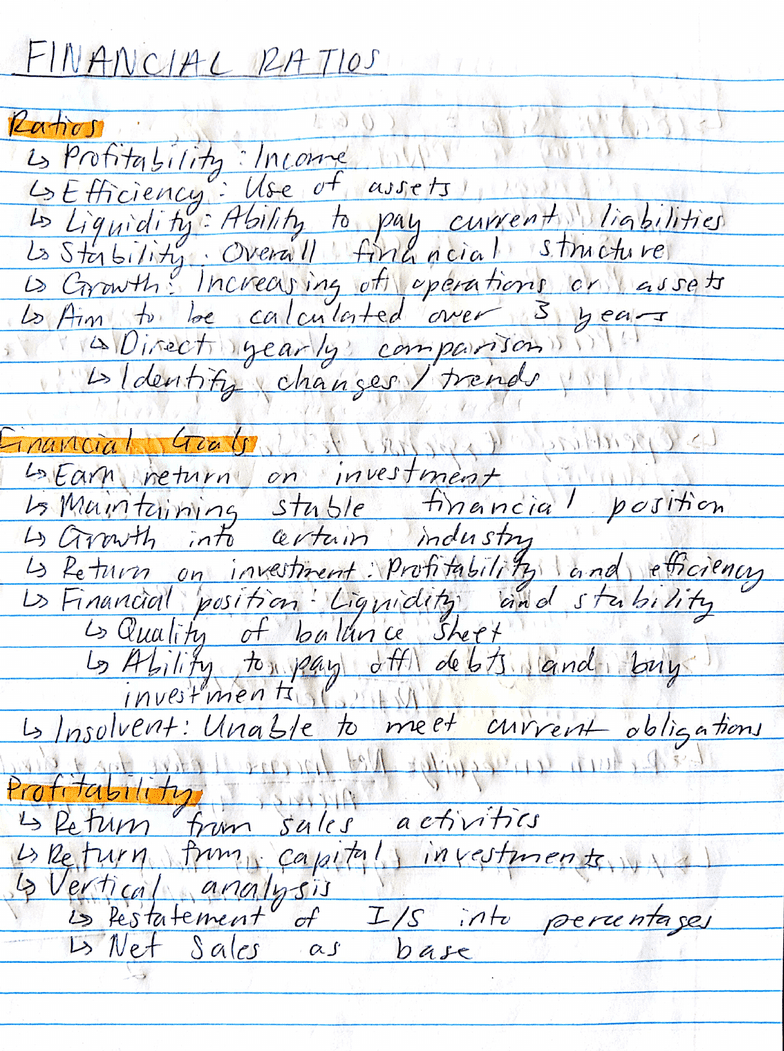 FINANCIAL RATIOS
Ratios
↳ Profitability : Income
↳ Efficiency : Use of assets
↳ Liquidity : Ability to pay current liabilities
↳ Stability : Overall financial structure
↳ Growth : Increasing of operations or assets
↳ Aim to be calculated over 3 years
↳ Direct yearly comparison
↳ Identify changes / trends
Financial Goals
↳ Earn return on investment
↳ Maintaining stable financial position
↳ Growth into certain industry
↳ Return on investment : Profitability and efficiency
↳ Financial position : Liquidity and stability
↳ Quality of balance sheet
↳ Ability to pay off debts and buy
investments
↳ Insolvent : Unable to meet current obligations
Profitability
↳ Return from sales activities
↳ Return from capital investments
↳ Vertical analysis
↳ Restatement of I/S into percentages
↳ Net Sales as base